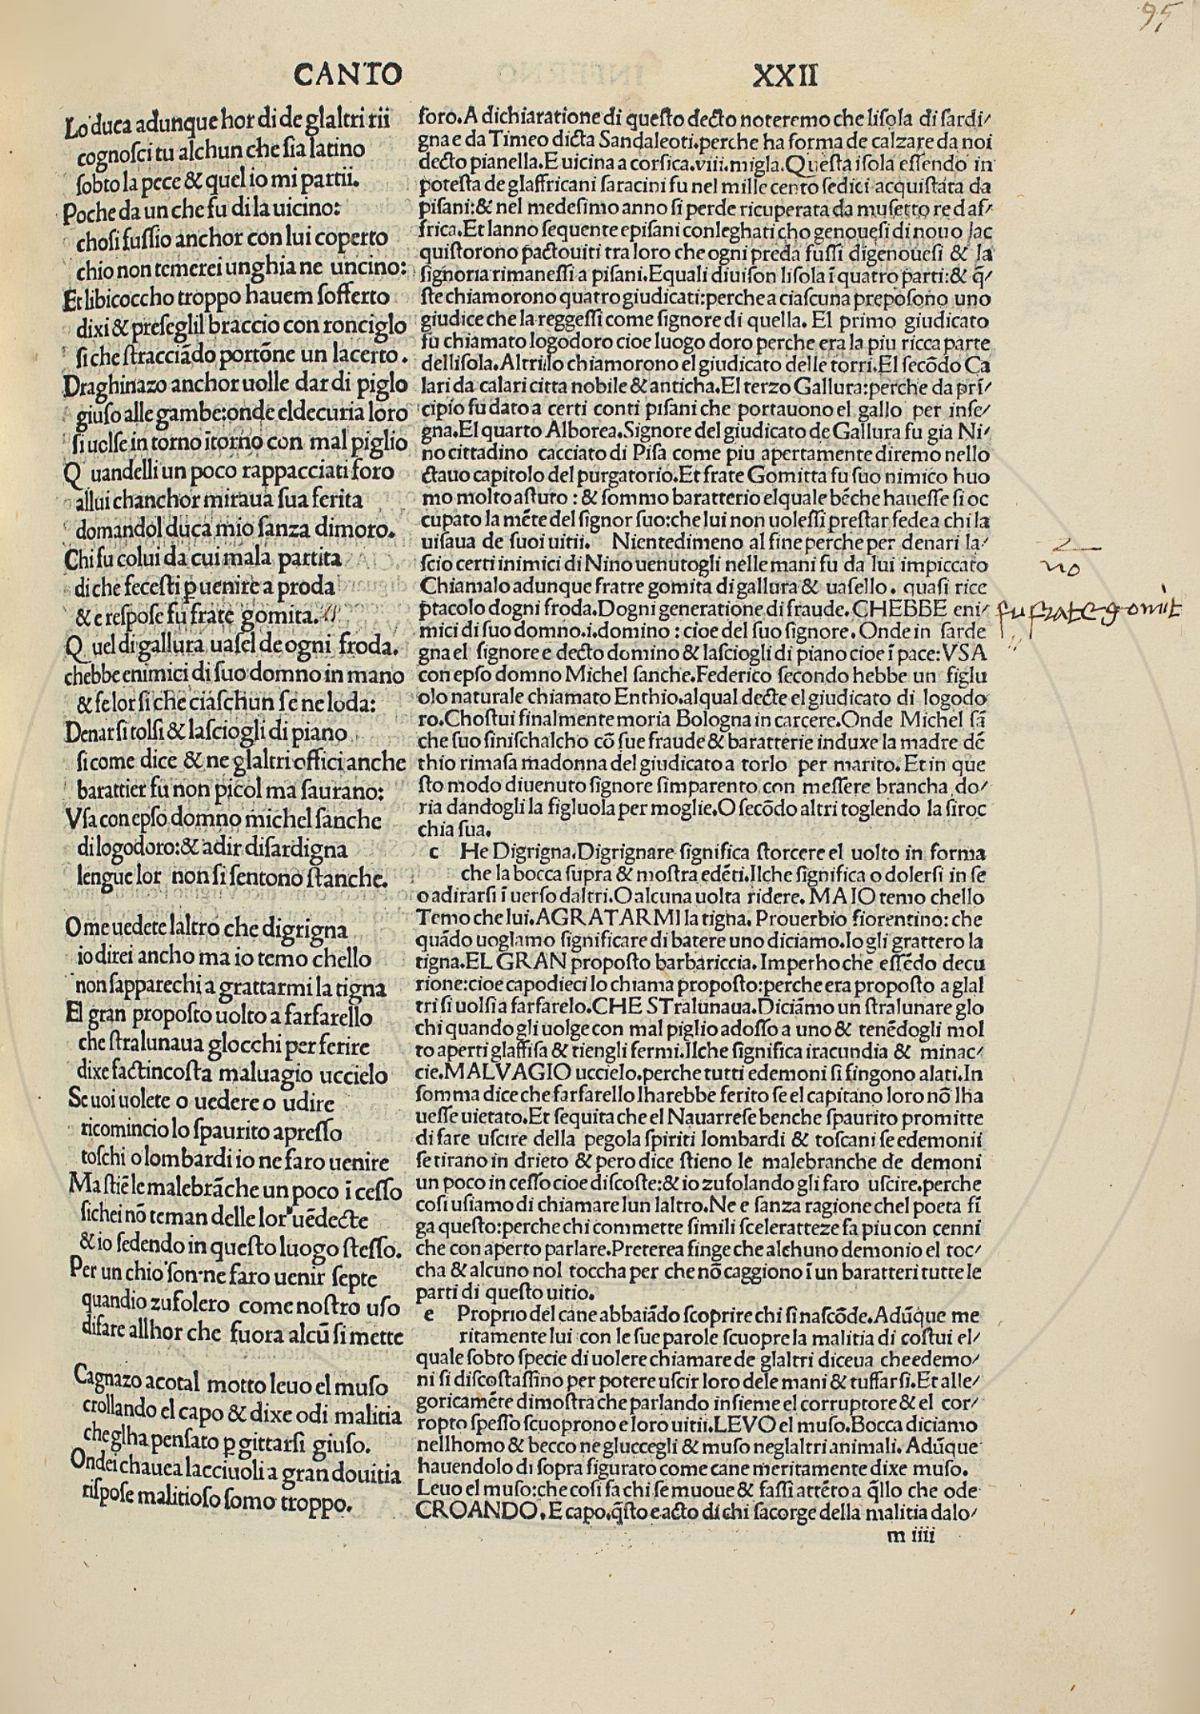 95
CANTO XXII
Lo duca adunque hor di de glaltri rii
cognosci tu alchun che sia latino
sobto la pece & quel io mi partii.
Poche da un che fu di la uicino:
chosi fussio anchor con lui coperto
chio non temerei unghia ne uncino:
Et libicoccho troppo hauem sofferto
dixi & preseglil braccio con ronciglo
si che stracciãdo portõne un lacerto.
Draghinazo anchor uolle dar di piglo
giuso alle gambe:onde eldecuria loro
si uolse in torno ītorno con mal piglio
Q uandelli un poco rappacciati foro
allui chanchor miraua sua ferita
domandol duca mio sanza dimoro.
Chi fu colui da cui mala partita
di che fecesti ꝑuenire a proda
& e respose fu frate gomita.
Q uel di gallura uasel de ogni froda.
chebbe enimici di suo domno in mano
& se lor si che ciaschun se ne loda:
Denar si tolsi & lasciogli di piano
si come dice & ne glaltri offici anche
barattier fu non picol ma saurano:
Vsa con epso domno michel sanche
di logodoro:& a dir di sardigna
lengue lor non si sentono stanche.
O me uedete laltro che digrigna
io direi ancho ma io temo chello
non sapparechi a grattarmi la tigna
El gran proposto uolto a farfarello
che stralunaua glocchi per ferire
dixe factincosta maluagio uccielo
Se uoi uolete o uedere o udire
ricomincio lo spaurito apresso
toschi o lombardi io ne faro uenire
Ma stiẽ le malebrãche un poco ī cesso
sichei nõ teman delle lor uẽdecte
& io sedendo in questo luogo stesso.
Per un chio son·ne faro uenir septe
quandio zufolero come nostro uso
di fare allhor che fuora alcũ si mette
Cagnazo acotal motto leuo el muso
crollando el capo & dixe odi malitia
che glha pensato ꝑ gittarsi giuso.
Ondei chauea lacciuoli a gran douitia
rispose malitioso somo troppo.
foro.A dichiaratione di questo decto noteremo che lisola di sardi/
gna e da Timeo dicta Sandaleoti.perche ha forma de calzare da noi
decto pianella.E uicina a corsica.viii.migla.Questa isola essendo in
potesta de glaffricani saracini fu nel mille cento sedici acquistata da
pisani:& nel medesimo anno si perde ricuperata da musetto re daf/
frica.Et lanno sequente episani conleghati cho genouesi di nouo lac
quistorono pactouiti tra loro che ogni preda fussi digenouesi & la
signoria rimanessi a pisani.Equali diuison lisola ī quatro parti:& q̃/
ste chiamorono quatro giudicati:perche a ciascuna preposono uno
giudice che la reggessi come signore di quella. El primo giudicato
fu chiamato logodoro cioe luogo doro perche era la piu ricca parte
dellisola.Altri lo chiamorono el giudicato delle torri.El secõdo Ca
lari da calari citta nobile & anticha.El terzo Gallura:perche da prī/
cipio fu dato a certi conti pisani che portauono el gallo per inse/
gna.El quarto Alborea.Signore del giudicato de Gallura fu gia Ni/
no cittadino cacciato di Pisa come piu apertamente diremo nello
ctauo capitolo del purgatorio.Et frate Gomitta fu suo nimico huo
mo molto astuto : & sommo baratterio elquale bẽche hauesse si oc
cupato la mẽte del signor suo:che lui non uolessi prestar fede a chi la
uisaua de suoi uitii. Nientedimeno al fine perche per denari la/
scio certi inimici di Nino uenutogli nelle mani fu da lui impiccato
Chiamalo adunque fratre gomita di gallura & uasello. quasi rice
ptacolo dogni froda.Dogni generatione di fraude.CHEBBE eni/
mici di suo domno.i.domino : cioe del suo signore. Onde in sarde
gna el signore e decto domino & lasciogli di piano cioe ī pace:VSA
con epso domno Michel sanche.Federico secondo hebbe un figlu
olo naturale chiamato Enthio.alqual decte el giudicato di logodo
ro.Chostui finalmente moria Bologna in carcere.Onde Michel sã
che suo siniscalcho cõ sue fraude & baratterie induxe la madre dẽ
thio rimasa madonna del giudicato a torlo per marito. Et in que
sto modo diuenuto signore simparento con messere brancha do/
ria dandogli la figluola per moglie.O secõdo altri toglendo la siroc
chia sua.
c He Digrigna.Digrignare significa storcere el uolto in forma
che la bocca supra & mostra edẽti.Ilche significa o dolersi in se
o adirarsi ī uerso daltri.O alcuna uolta ridere. MA IO temo chello
Temo che lui.AGRATARMI la tigna. Prouerbio fiorentino: che
quãdo uoglamo significare di batere uno diciamo.Io gli grattero la
tigna.EL GRAN proposto barbariccia. Imperhoche essẽdo decu
rione:cioe capodieci lo chiama proposto:perche era proposto a glal
tri si uolsi a farfarelo.CHE STralunaua.Diciãmo un stralunare glo
chi quando gli uolge con mal piglio adosso a uno & tenẽdogli mol
to aperti glaffisa & tiengli fermi.Ilche significa iracundia & minac/
cie.MALVAGIO uccielo.perche tutti edemoni si fingono alati.In
somma dice che farfarello lharebbe ferito se el capitano loro nõ lha
uesse uietato.Et sequita che el Nauarrese benche spaurito promitte
di fare uscire della pegola spiriti lombardi & toscani se edemonii
se tirano in drieto & pero dice stieno le malebranche de demoni
un poco in cesso cioe discoste:& io zufolando gli faro uscire.perche
cosi usiamo di chiamare lun laltro.Ne e sanza ragione chel poeta fī
ga questo:perche chi commette simili sceleratteze fa piu con cenni
che con aperto parlare.Preterea finge che alchuno demonio el toc/
cha & alcuno nol toccha per che nõ caggiono ī un baratteri tutte le
parti di questo uitio.
e Proprio del cane abbaiãdo scoprire chi si nascõde.Adũque me
ritamente lui con le sue parole scuopre la malitia di costui el/
quale sobto specie di uolere chiamare de glaltri diceua che edemo/
ni si discostassino per potere uscir loro dele mani & tuffarsi.Et alle/
goricamẽte dimostra che parlando insieme el corruptore & el cor/
ropto spesso scuoprono e loro uitii.LEVO el muso.Bocca diciamo
nellhomo & becco ne gluccegli & muso neglaltri animali. Adũque
hauendolo di sopra figurato come cane meritamente dixe muso.
Leuo el muso:che cosi fa chi se muoue & fassi attẽto a q̃llo che ode
CROANDO.E capo.q̃sto e acto di chi sacorge della malitia dalo/
m iiii
no
fu frate gomit